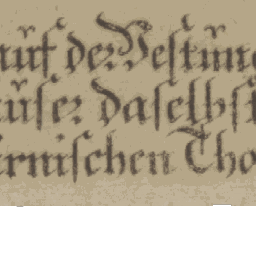 auf der Vestung
äuser daselbst
ernischen Tho